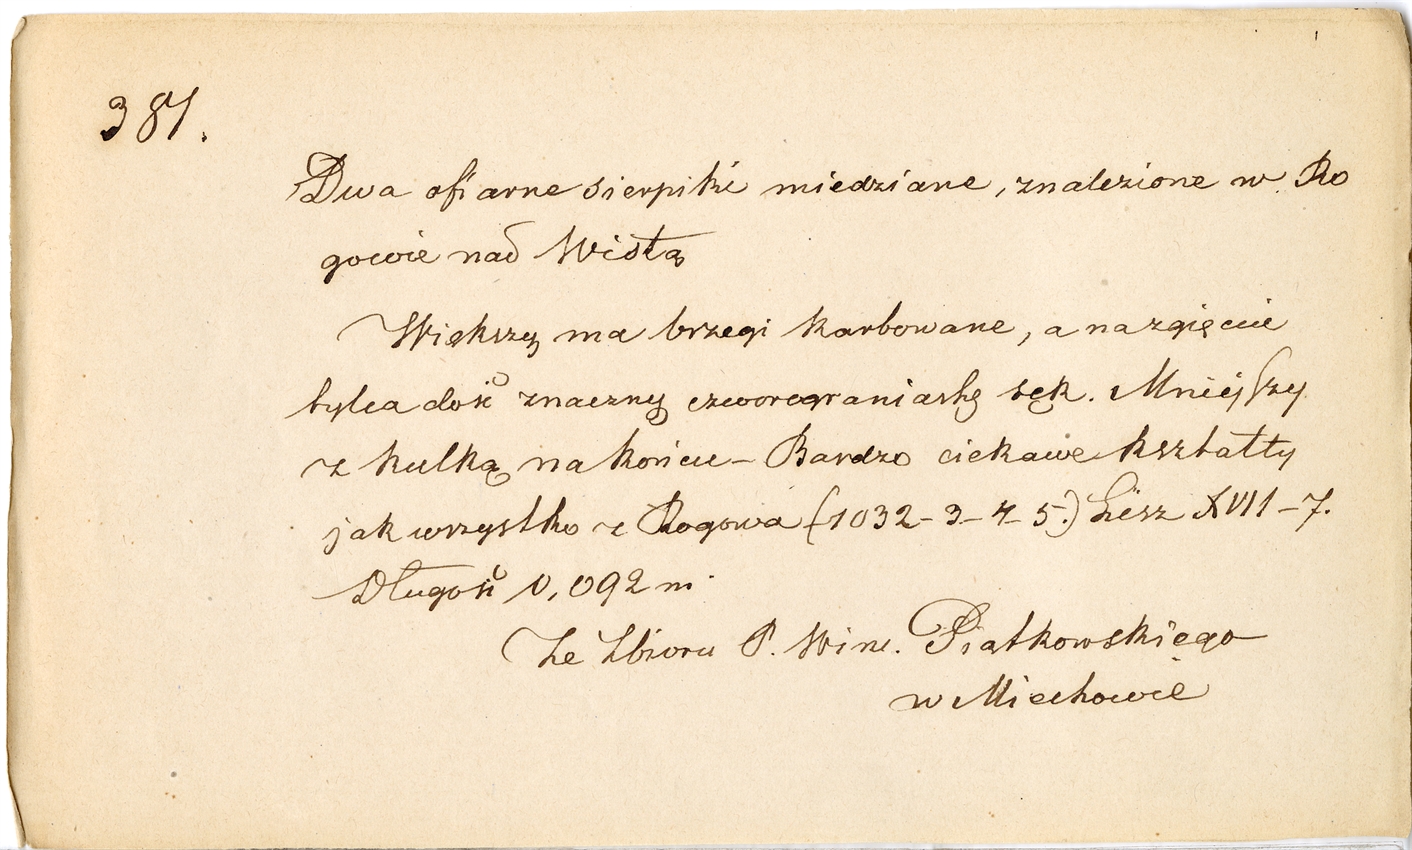 381.
Dwa ofiarne sierpiki miedziane, znalezione w Ro
gowie nad Wisłą
Większy ma brzegi karbowane, a na zgięcie
tylca dość znaczny czworograniasty sęk. Mniejszy
z kulką na końcu – Bardzo ciekawe kształty
jak wszystko z Rogowa (1032-3-4-5.) Lész XVII-7.
Długość 0,092 m.
Ze Zbioru P. Winc. Piatkowskiego
w Miechowie